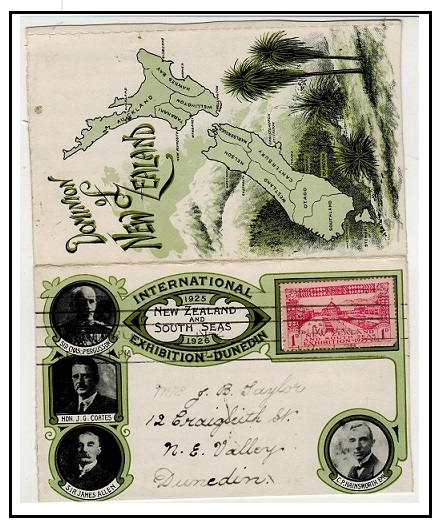 DOMINION
of
NEW ZEALAND
AUCKLAND
HAWKES BAY
TARANAKI
WELLINGTON
NELSON
MARLBOROUGH
CANTERBURY
WESTLAND
OTAGO
SOUTHLAND
INTERNATIONAL
1925
NEW ZEALAND
AND
SOUTH SEAS
1926
EXHIBITION-DUNEDIN
SIR CHAS. FERGUSSON
HON. J. G. COATES
SIR JAMES ALLEN
1D 1D
EXHIBITION
Mrs J. B. Taylor
12 Craigleith St.
N. E. Valley
Dunedin.
C.P. HAINSWORTH ESQ.